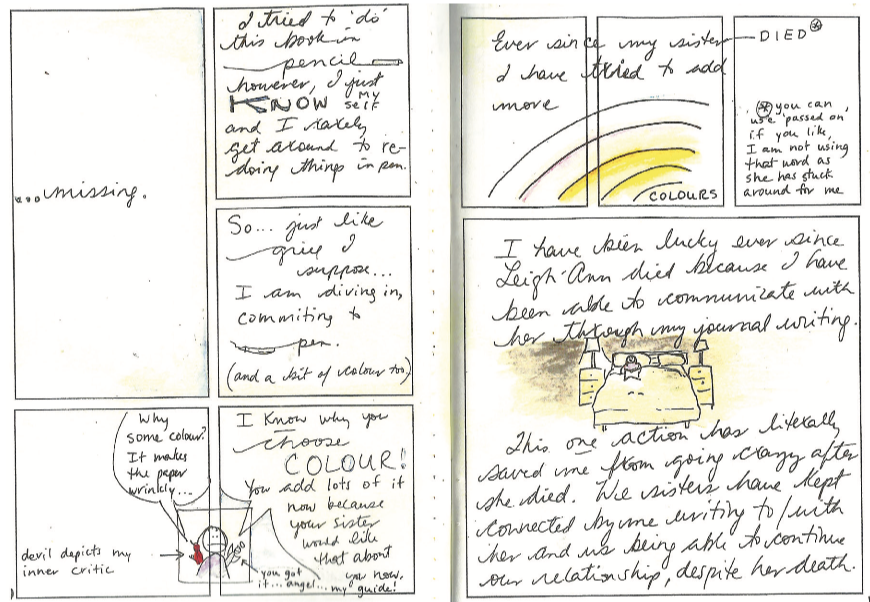 ...missing.
I tried to 'do'
this book in
pencil
however, I just
KNOW my
self
and I rarely
get around to re-
doing things in pen.
So... just like
grief I
suppose...
I am diving in,
commiting to
pen.
(and a bit of colour too)
Why
some colour?
It makes
the paper
wrinkly...
devil depicts my
inner critic
I Know why you
choose
COLOUR!
You add lots of it
now because
your sister
would like
that about
you now.
you got
it... angel... my guide!
Ever since my sister — DIED*
I have tried to add
more
COLOURS
* you can
use 'passed on'
if you like,
I am not using
that word as
she has stuck
around for me
I have been lucky ever since
Leigh-Ann died because I have
been able to communicate with
her through my journal writing.
This one action has literally
saved me from going crazy after
she died. We sisters have kept
connected by me writing to/with
her and us being able to continue
our relationship, despite her death.